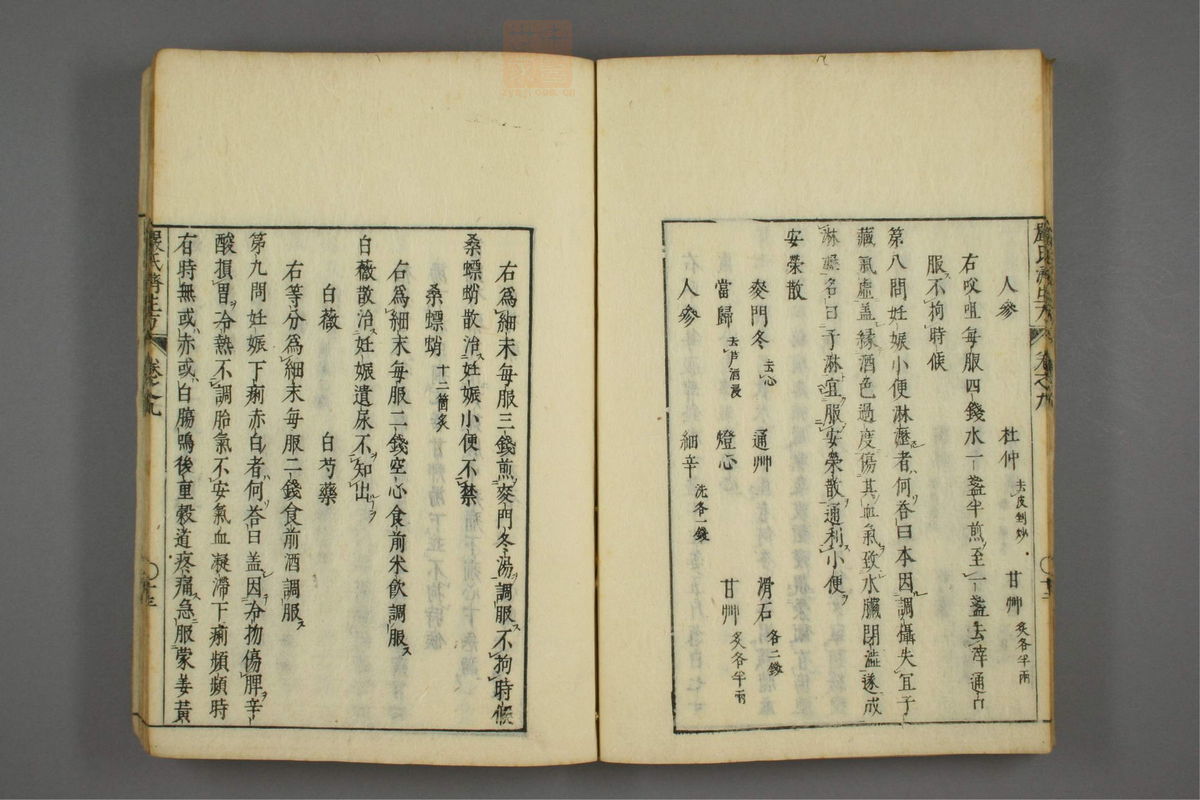 人參　杜仲去皮剉炒　甘艸炙各半兩
右㕮咀每服四錢水一盞半煎至一盞去滓通口
服不拘時候
第八問妊娠小便淋瀝者何荅曰本因調攝失宜子
藏氣虛盖緣酒色過度傷其血氣致水臟閉澁遂成
淋瀝名曰子淋宜服安榮散通利小便
安榮散
麥門冬去心　通艸　滑石各二錢
當歸去芦酒浸　燈心　甘艸炙各半兩
人參　細辛洗各一錢
右爲細末每服三錢煎麥門冬湯調服不拘時候
桑螵蛸散治妊娠小便不禁
桑螵蛸十二箇炙
右爲細末每服二錢空心食前米飲調服
白薇散治妊娠遺尿不知出
白薇　白芍藥
右等分爲細末每服二錢食前酒調服
第九問妊娠下痢赤白者何荅曰盖因冷物傷脾辛
酸損胃冷熱不調胎氣不安氣血凝滯下痢頻頻時
右時無或赤或白腸鳴後重穀道疼痛急服蒙姜黃
嚴氏濟生方　卷之九